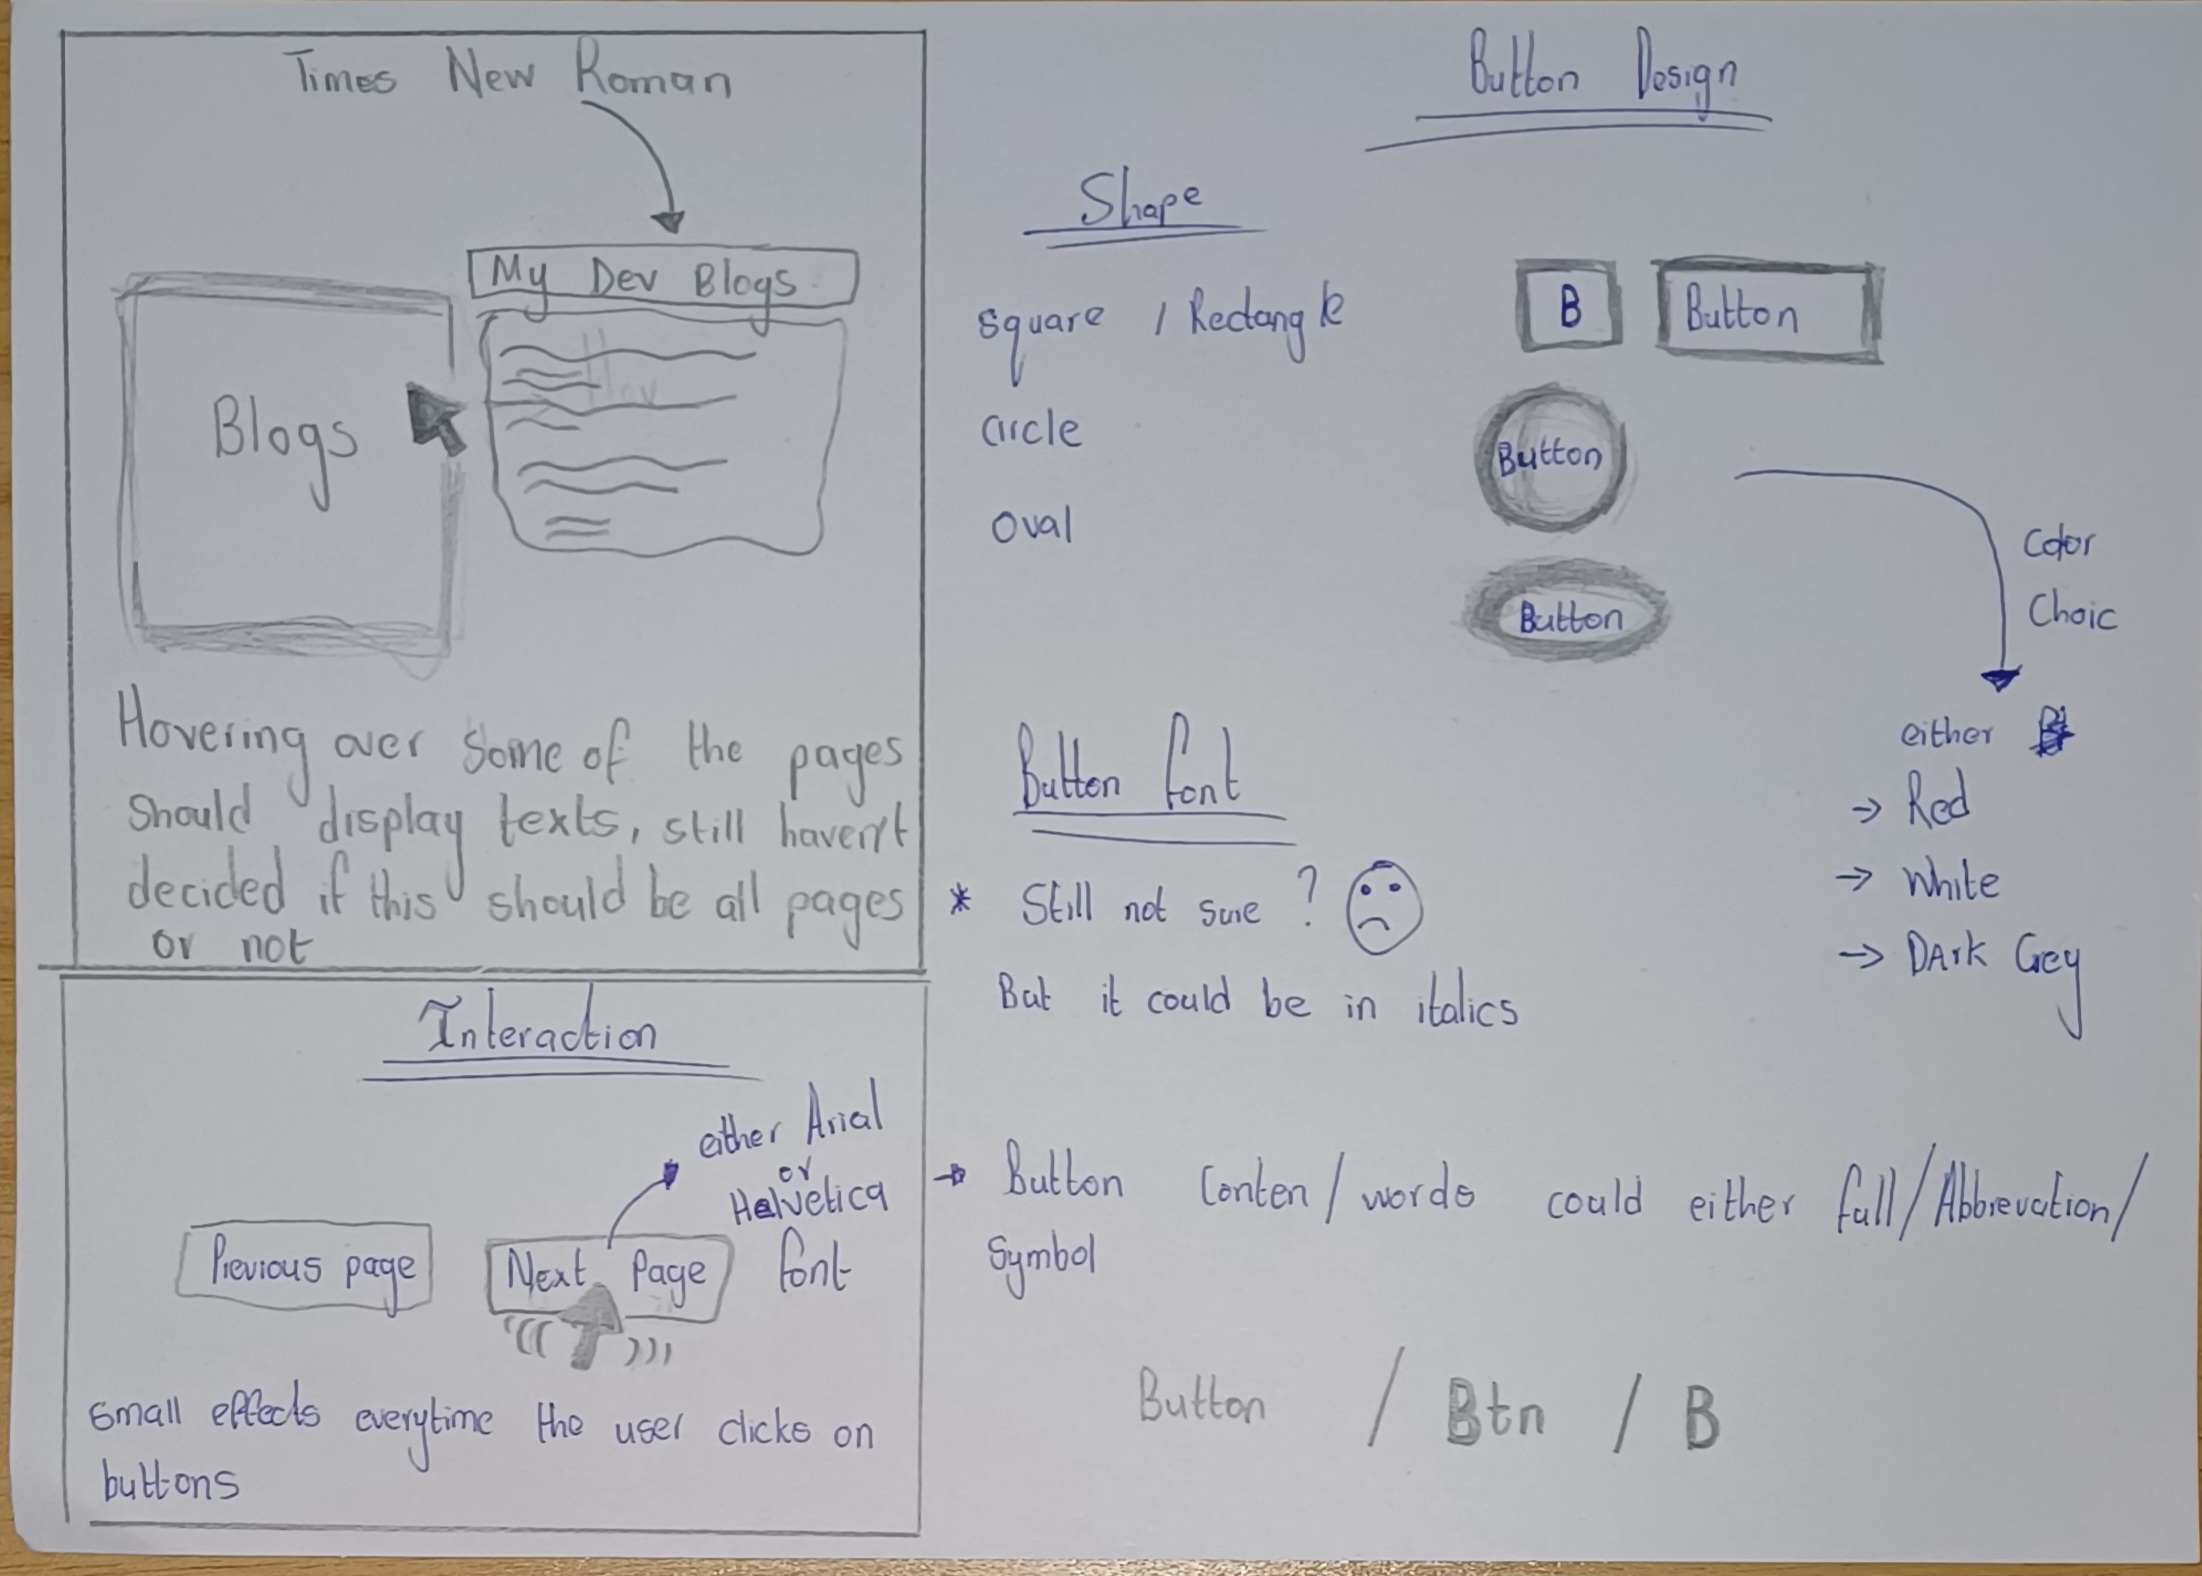 Times New Roman
My Dev Blogs
Blogs
Hovering over some of the pages
should display texts, still haven't
decided if this should be all pages
or not
Interaction
either Arial
or
Helvetica
font
Previous page
Next Page
small effects everytime the user clicks on
buttons
Button Design
Shape
square / Rectangle
B
Button
circle
Button
oval
Button
Color
Choic
either
→ Red
→ White
→ DArk Grey
Button font
* Still not sure ?
But it could be in italics
→ Button Conten/words could either full/Abbrevation/
Symbol
Button / Btn / B